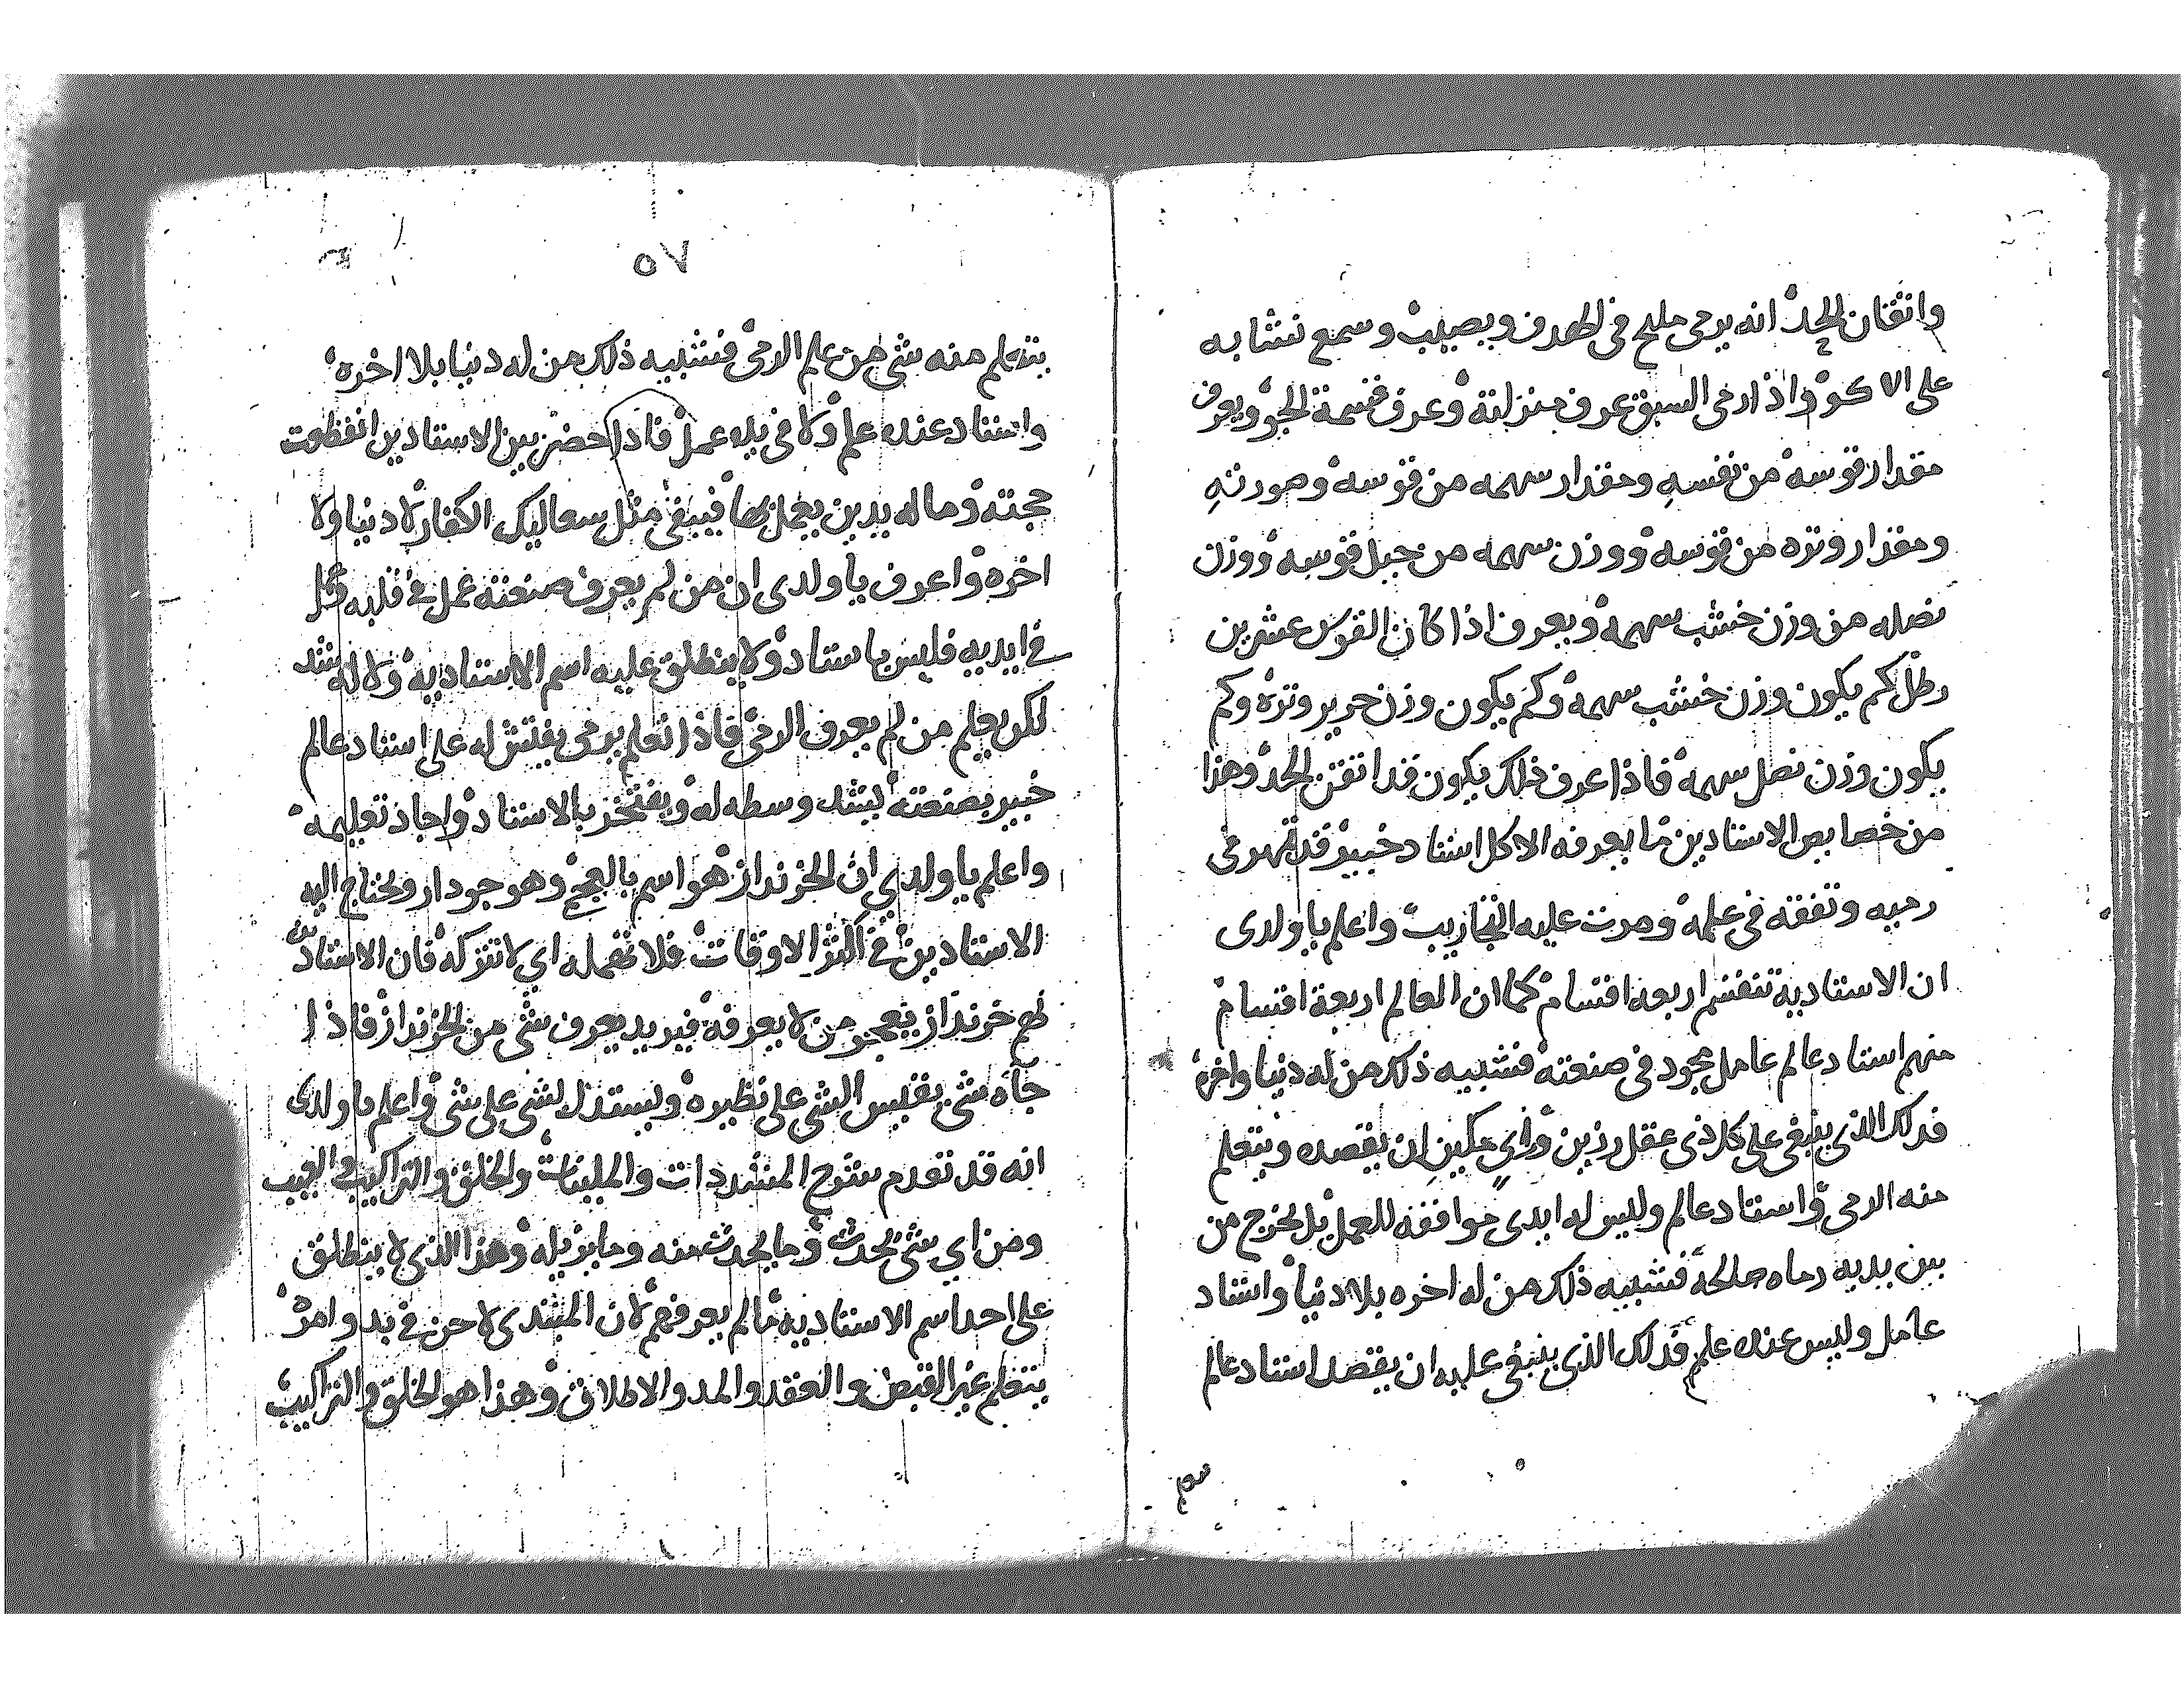 واتقان الحد انه يرمى مليح فى الهدف ويصيب وسمع نشابه
على الا كو واذا رمى السبق عرف منزلته وعرف قسمة الجو ويعرف
مقدار قوسه من نفسه ومقدار سهمه من قوسه وصورته
ومقدار وتره من قوسه ووزن سهمه من حبل قوسه ووزن
نصله من وزن خشب سهمه ويعرف اذا كان القوس عشرين
رطل كم يكون وزن خشب سهمه وكم يكون وزن حرير وتره وكم
يكون وزن نصل سهمه فاذا عرف ذلك يكون قد اتقن الحد وهذا
من خصايص الاستادين ما يعرفه الا كل استاد خبير قد تمهر فى
رميه وتفقه فى علمه ومرت عليه التجاريب واعلم يا ولدى
ان الاستاديه تنقسم اربعه اقسام كما ان العالم اربعة اقسام
منهم استاد عالم عامل مجود فى صنعته فشبيه ذلك من له دنيا واخره
فدلك الذى ينبغى على كل ذى عقل رزين وراي مكين ان يقصده ويتعلم
منه الرمى واستاد عالم وليس له ايدى موافقه للعمل بل يخرج من
بين يديه رماه صالحه فشبيه ذلك من له اخره بلا دنيا واستاد
عامل وليس عنده علم فدلك الذى ينبغى عليه ان يقصد استاد عالم
٥٧
يتعلم منه شى من علم الرمى فشبيه ذلك من له دنيا بلا اخره
واستاد عنده علم ولا فى يده عمل فاذا احضر بين الاستادين انقظوت
حجته وما له يدين يعمل بها فيبقى مثل سعاليك الكفار لا دنيا ولا
اخره واعرف يا ولدى ان من لم يعرف صنعته عمل فى قلبه قبل
فى ايديه فليس باستاد ولا ينطلق عليه اسم الاستاديه ولا له يشد
لكن يعلم من لم يعرف الرمى فاذا تعلم يرمى يفتش له على استاد عالم
خبير بصنعته ليشد وسطه له ويفتخر بالاستاد واجاد تعليمه
واعلم يا ولدى ان الخزنداز هو اسم بالعجمى وهو جودار ويحتاج اليه
الاستادين فى اكثر الاوقات فلا تهمله اي لا تتركه فان الاستادين
لهم خزنداز فيعجز من لا يعرفه فيريد يعرف شى من الخزنداز فاذا
جاه شى يقيس الشى على نظيره ويستدل لشى على شى واعلم يا ولدى
انه قد تقدم شرح المشددات والملينات والخلق والتراكيب والعيب
ومن اي شى يحدث وما يحدث منه وما يزيله وهذا الذى لا ينطلق
على احد اسم الاستاديه ما لم يعرفهم لان المبتدى لا حزن فى بدو امره
يتعلم غير القبض والعقد والمد والاطلاق وهذا هو الخلق والتراكيب